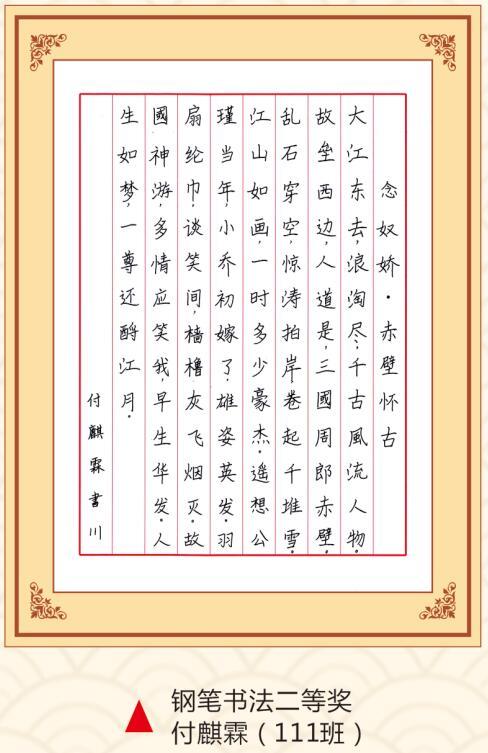 念奴娇·赤壁怀古
大江东去，浪淘尽；千古風流人物。
故垒西边，人道是，三國周郎赤壁。
乱石穿空，惊涛拍岸卷起千堆雪。
江山如画，一时多少豪杰。遥想公
瑾当年，小乔初嫁了，雄姿英发。羽
扇纶巾，谈笑间，樯橹灰飞烟灭。故
國神游，多情应笑我，早生华发。人
生如梦，一尊还酹江月。
付麒霖書川
钢笔书法二等奖
付麒霖（111班）